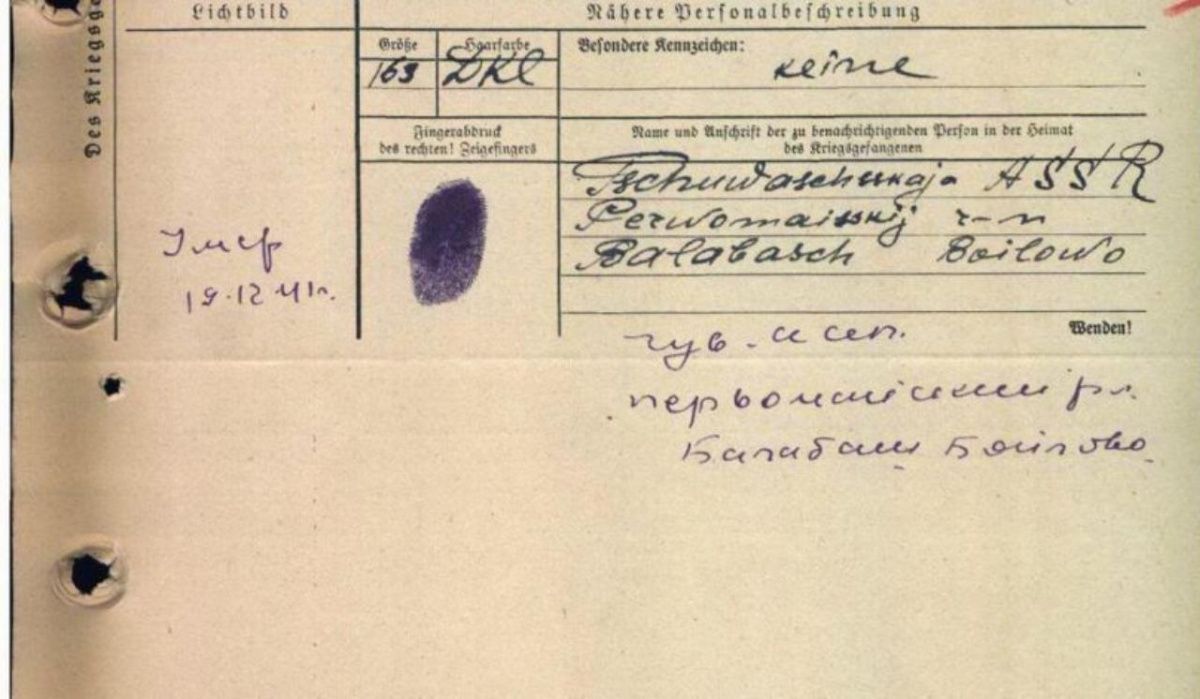 Des Kriegsge
Lichtbild
Nähere Personalbeschreibung
Größe
Haarfarbe
Besondere Kennzeichen:
163
DKl
keine
Fingerabdruck
des rechten! Zeigefingers
Name und Anschrift der zu benachrichtigenden Person in der Heimat
des Kriegsgefangenen
Tschuwaschskaja ASSR
Perwomaisskij r-n
Balabasch Boilowo
Умер
19.12 41г.
Wenden!
чув.
первомайский р.
Балабаш Боилово